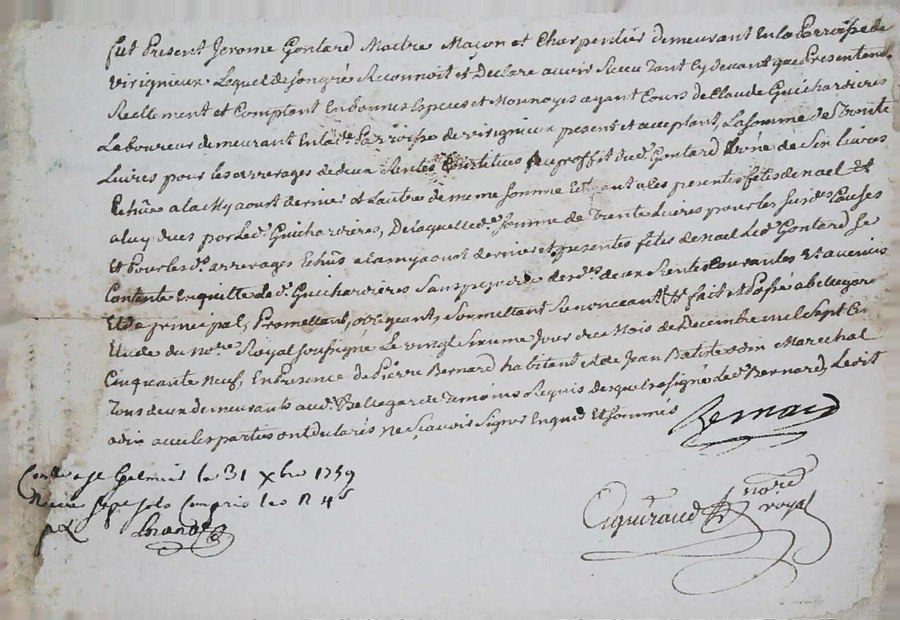 fut Present Jerome Gontard Maitre Maçon et Charpentier demeurant En la Parroisse de
virignieux Lequel de son gré Reconnoit et Declare avoir Receu Tant Cy devant que Presentemt
Reellement et Comptant En bonnes Especes et Monnoyes ayant Cours de Claude Guichardieres
Laboureur demeurant En lad. Parroisse de virignieux present et acceptant, La somme de Trente
Livres pour les arrerages de deux Rentes Constitues Au proffit dud. Gontard L'une de Six livres
Echüe a la My aoust dernier et L'autre de meme somme
a luy dues par Led. Guichardieres, De laquelle de. somme de Trente Livres pour les susd. Causes
Et pour lesd. arrerages Echus a la my aoust dernier et presentes fetes de nael led. Gontard Se
Contente En quitte led. Guichardieres Sans prejudice desd. deux Rentes Courantes Et avenir
Et du principal, Promettant, obligeant, Soumettant Renonceant &t. fait et Passé a bellegarde
Etude du nore. Royal soussigne Le vingt Sixieme Jour du Mois de Decembre mil Sept Cent
Cinquante Neuf, En Presence de Pierre Bernard habitant et de Jean Batiste odin Marechal
Tous deux demeurants aud. Bellegarde Temoins Requis desquels a signé led. Bernard, Ledit
odin avec les parties ont declarés ne Sçavoir Signer Enquis Et sommés
Bernard
Conlle a St Galmier le 31 xbre 1759
Receu sept sols Compris les
Eyguiraud nore royal